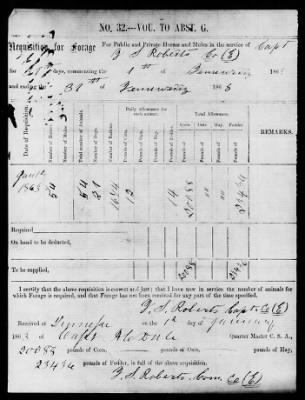 NO. 32.—VOU. TO ABST. G.
Requisition for Forage For Public and Private Horses and Mules in the service of Capt
T. S. Roberts Co (E)
for days, commencing the 1st of January 1863
and ending the 31st of January 1863
Date of Requisition.
Number of Horses.
Number of Mules.
Total Number of Animals.
Number of Days.
Number of Rations.
Daily allowance for each animal.
Pounds of Corn.
Pounds of Fodder.
Total Allowance.
Corn. Oats. Hay. Fodder.
REMARKS.
1863 54 54 31 1674 12 14 20088 23436
Required
On hand to be deducted,
To be supplied, 20088 23436
I certify that the above requisition is correct and just; that I have now in service the number of animals
for which Forage is required, and that Forage has not been received for any part of the time specified.
T. S. Roberts Capt. Co (E)
Received at on the 1st of January
1863 of Capt Quarter Master C. S. A.,
20088 pounds of Corn, pounds of Hay,
23436 pounds of Fodder, in full of the above requisition.
T. S. Roberts Com. Co (E)